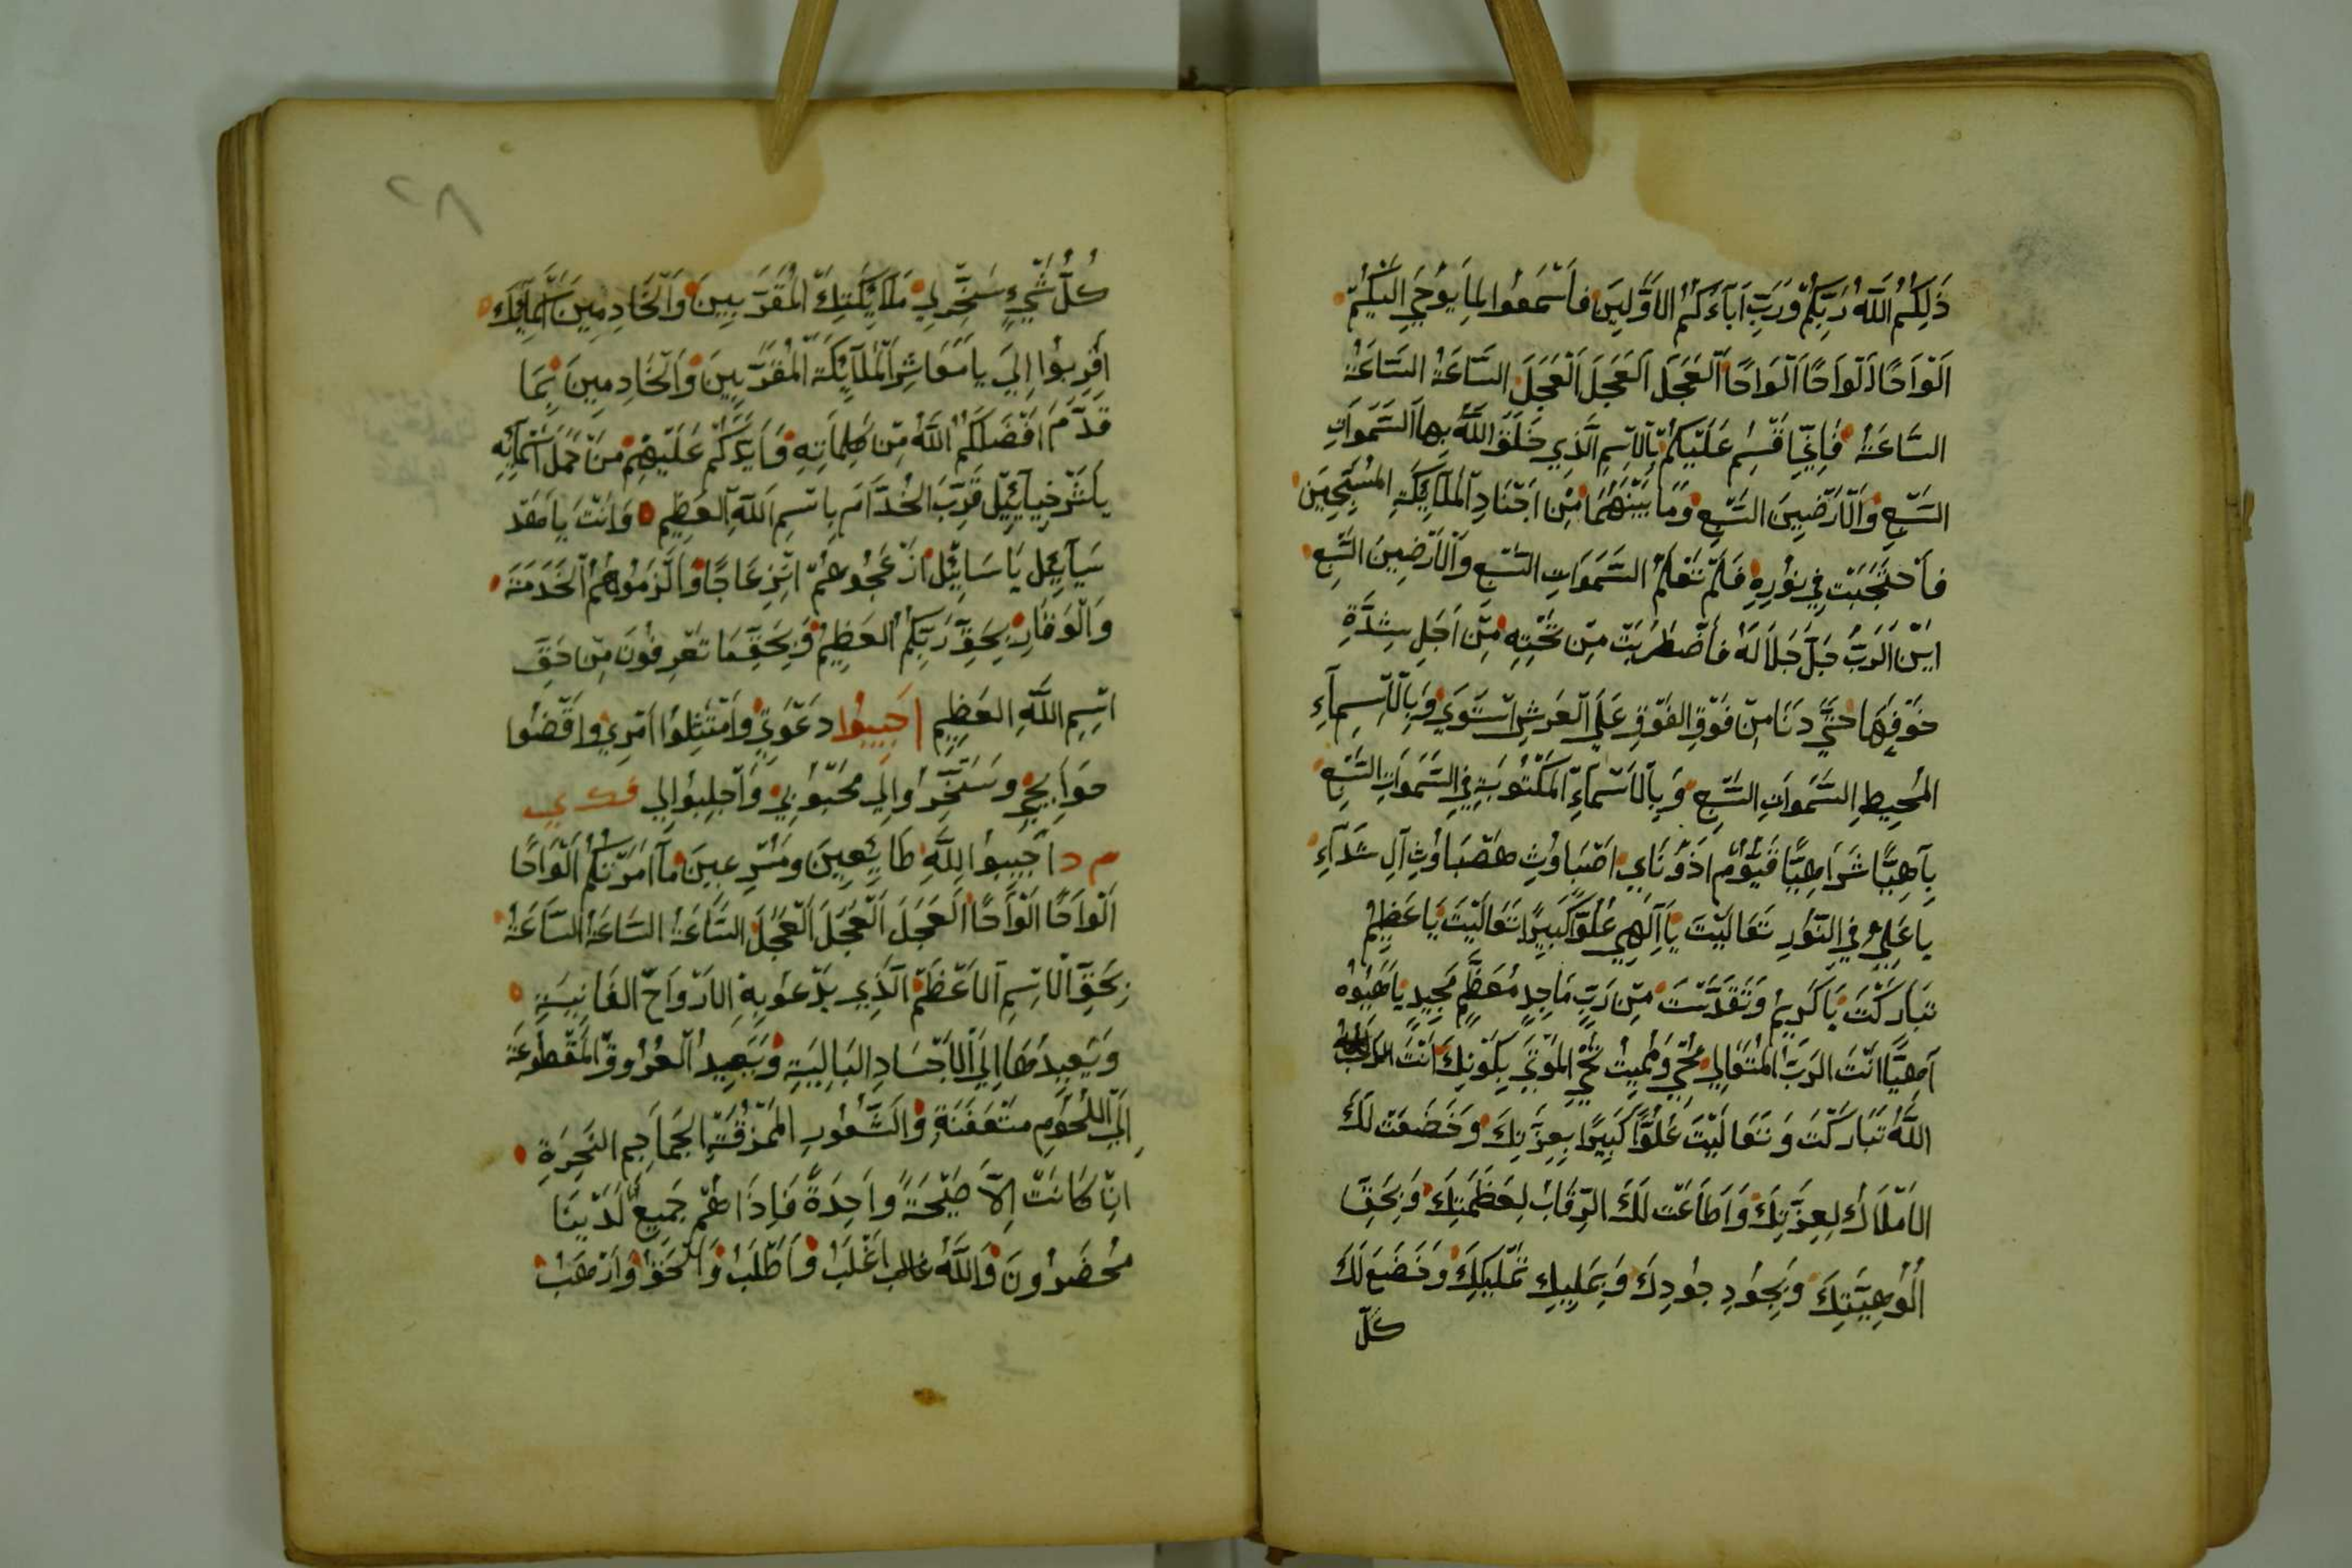 ذَلِكُمُ اللَّهُ رَبَّكُمْ وَرَبِّ اَبَآءَكُمُ الاَوَّلِينَ فَاَسْمَعُوا لِمَا يُوحَي اِلَيْكُمْ
اَلْوَاحًا اَلْوَاحًا اَلْوَاحًا اَلْعَجَلَ اَلْعَجَلَ اَلْعَجَلَ السَّاعَةْ السَّاعَةْ
السَّاعَةْ فَاِنِّي اُقْسِمُ عَلَيْكُمْ بِالْاِسْمِ الَّذِي خَلَقَ اللَّهُ بِهَا السَّمَوَاتِ
السَّبْعِ وَالْاَرْضِينَ السَّبْعِ وَمَا بَيْنَهُمَا مِنْ اَجْنَادِ الْمَلَآئِكَةِ الْمُسَبِّحِينَ
فَاَحْتَجَبَتْ فِي نُورِهِ فَلَمْ تَعْلَمْ السَّمَوَاتِ السَّبْعِ وَالْاَرْضِينَ السَّبْعِ
اَيْنَ الرَبُّ جَلَّ جَلَالَهُ فَاَضْطَرَبَتْ مِنْ تَحْتِهِ مِنْ اَجَلِ شِدَّةِ
خَوْفِهَا حَتَّي دَنَا مِنْ فَوْقِ الفَوْقِ عَلَي الْعَرْشِ اسْتَوَي وَبِالْاَسْمَآءِ
الْمُحِيطِ السَّمَوَاتِ السَّبْعِ وَبِالْاَسْمَآءِ الْمَكْتُوبَةِ فِي السَّمَوَاتِ السَّبْعِ
بِآهِيًّا شَرَاهِيًّا قَيُّوْم اَذُوْنَاي اَصْبَاوُثِ هَصْبَاوُثِ آلِ شَدَآءِ
يَا عَلِيُّ فِي النُّورِ تَعَالَيْتَ يَا اِلَهِي عُلُوًّا كَبِيرًا تَعَالَيْتَ يَا عَظِيمُ
تَبَارَكْتَ يَا كَرِيمُ وَتَقَدَّسْتَ مِنْ رَبِّ مَاجِدٍ مُعَظَّمٍ مَجِيدٍ يَا هَيُوْهُ
اَهِيًّا اَنْتَ الرَبُّ الْمُتَعَالِي مُحْيِ وَمُمِيتْ تُحْيِ الْمَوْتَي بِكَوْنِكَ اَنْتَ
اللَّهُ تَبَارَكْتَ وَتَعَالَيْتَ عُلُوًّا كَبِيرًا بِعِزَّتِكَ وَخَضَعَتْ لَكَ
الاَمْلَاكُ لِعِزَّتِكَ وَاَطَاعَتْ لَكَ الرِّقَابُ لِعَظَمَتِكَ وَبِحَقِّ
اُلُوهِيَّتِكَ وَبِجُودِ جُودِكَ وَ تَمْلِيكِكَ وَخَضَعَ لَكَ
كُلّ
كُلُّ شَيْءٍ سَخِّرْ لِي مَلَآئِكَتِكَ الْمُقَرَّبِينَ وَالْخَادِمِينَ
اَقْرِبُوا اِلَيَ يَا مَعَاشِرَ الْمَلَآئِكَةِ الْمُقَرَّبِينَ وَالْخَادِمِينَ بِمَا
قَدَّمَ اَفْضَلَكُمُ اللَّهُ مِنْ كَلِمَاتِهِ وَاَيَّدَكُمْ عَلَيْهِمْ مَنْ حَمَلَ اَسْمَآئِهِ
يَا شَرْخِيآئِيلُ قَرِّبِ الْخُدَّامَ بِاسْمِ اللَّهِ الْعَظِيمِ وَاَنْتَ يَا
سَيَآئِيل يَا سَايِيلُ اَزْعِجُوهُمْ اِنْزِعَاجًا وَاَلْزِمُوهُمُ الْخَدَمَةَ
وَالْوَقَارِ بِحَقِّ رَبِّكُمُ الْعَظِيمُ وَبِحَقِّ مَا تَعْرِفُونَ مِنْ حَقِّ
اِسْمِ اللَّهِ الْعَظِيمِ اَجِيبُوا دَعْوَتِي وَاَمْتَثِلُوا اَمْرِي وَاقْضُوا
حَوَآيِجِي وَسَخِّرُوا لِي مَحْبُوبِي وَاَجْلِبُوا لِي
م د اَجِيبُوا لِلَّهِ طَائِعِينَ وَمُسْرِعِينَ مَا اَمَرْتُكُمْ اَلْوَاحًا
اَلْوَاحًا اَلْوَاحًا اَلْعَجَلَ اَلْعَجَلَ اَلْعَجَلَ السَّاعَةْ السَّاعَةْ السَّاعَةْ
بِحَقِّ الْاِسْمِ الْاَعْظَمْ الَّذِي يَدْعُو بِهِ الْاَرْوَاحُ الْفَانِيَةِ
وَيُعِيدُهَا اِلَي الْاَجْسَادِ الْبَالِيَةِ وَيُعِيدُ الْعُرُوقَ الْمَقْطُوعَةَ
اِلَي اللُّحُومِ مُتَعَفِّنَةِ وَالشُّعُورِ الْمُمَزَّقَةِ الْجَمَاجِمِ النَّخِرَةِ
اِنْ كَانَتْ اِلَّا صَيْحَةً وَاحِدَةً فَاِذَا هُمْ جَمِيعٌ لَدَيْنَا
مُحْضَرُونَ وَاللَّهُ غَالِبْ اَغْلَبْ وَاَطْلَبْ وَاَلْحَقْ وَاَرْهَبْ